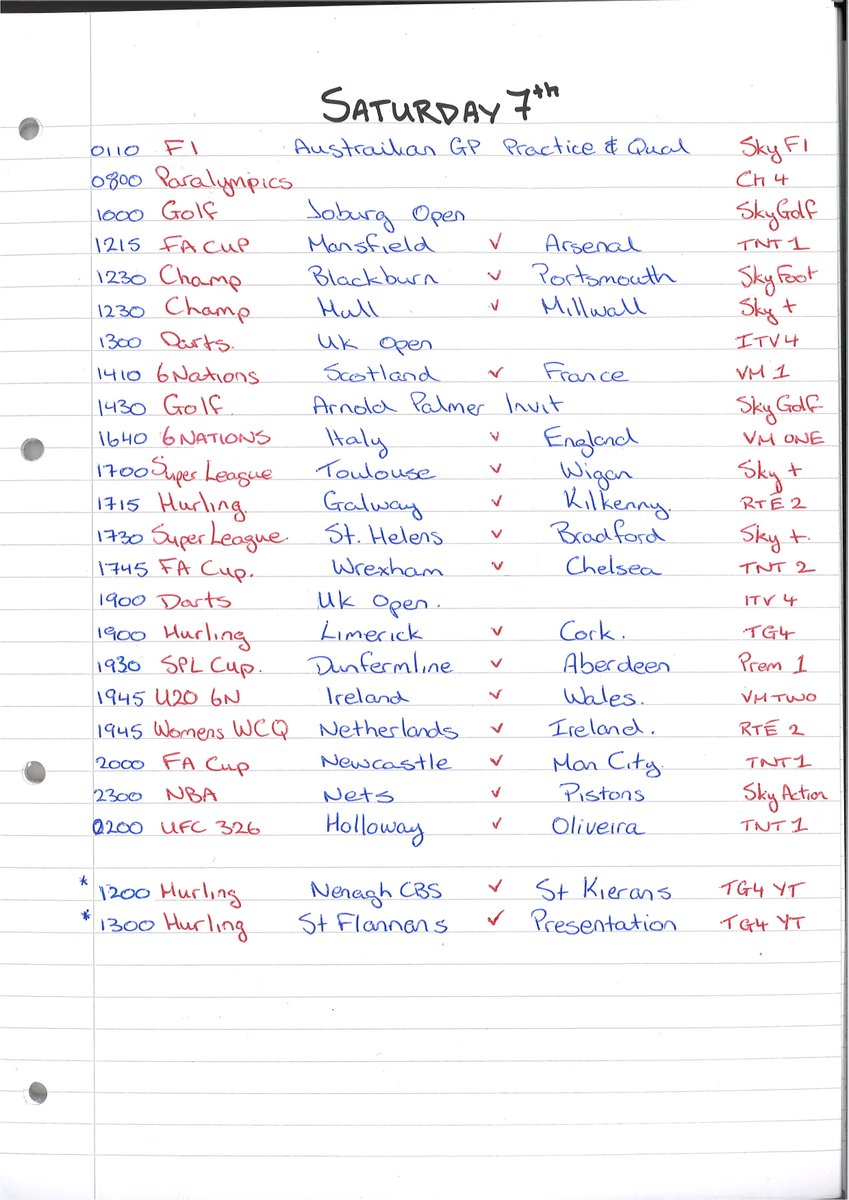 SATURDAY 7th
0110 F1 Austrailian GP Practice & Qual Sky F1
0800 Paralympics Ch 4
1000 Golf Joburg Open Sky Golf
1215 FA CUP Mansfield v Arsenal TNT 1
1230 Champ Blackburn v Portsmouth Sky Foot
1230 Champ Hull v Millwall Sky +
1300 Darts. UK Open ITV 4
1410 6 Nations Scotland v France VM 1
1430 Golf. Arnold Palmer Invit Sky Golf
1640 6 NATIONS Italy v England VM ONE
1700 Super League Toulouse v Wigan Sky +
1715 Hurling Galway v Kilkenny. RTÉ 2
1730 Super League. St. Helens v Bradford Sky +.
1745 FA Cup. Wrexham v Chelsea TNT 2
1900 Darts UK Open. ITV 4
1900 Hurling Limerick v Cork. TG4
1930 SPL Cup. Dunfermline v Aberdeen Prem 1
1945 U20 6N Ireland v Wales. VM TWO
1945 Womens WCQ Netherlands v Ireland. RTÉ 2
2000 FA Cup Newcastle v Man City. TNT 1
2300 NBA Nets v Pistons Sky Action
0200 UFC 326 Holloway v Oliveira TNT 1
* 1200 Hurling Nenagh CBS v St Kierans TG4 YT
* 1300 Hurling St Flannans v Presentation TG4 YT